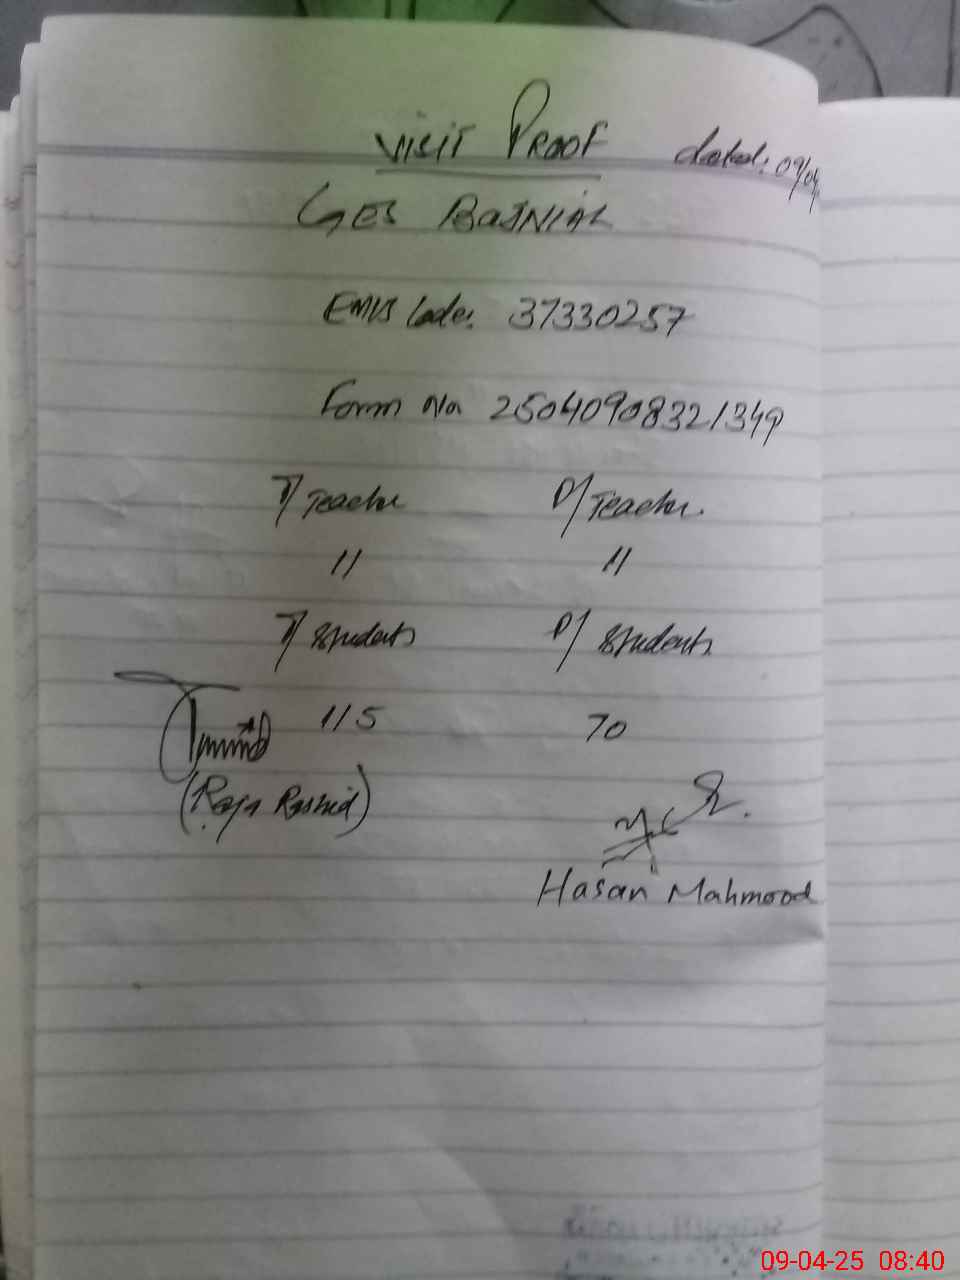 VISIT PROOF dated: 09/04
GES BAJNIAL
EMIS Code: 37330257
Form No 25040908321349
T/ Teacher P/ Teacher.
11 11
T/ Students P/ Students
115 70
(Raja Rashid)
Hasan Mahmood
09-04-25 08:40